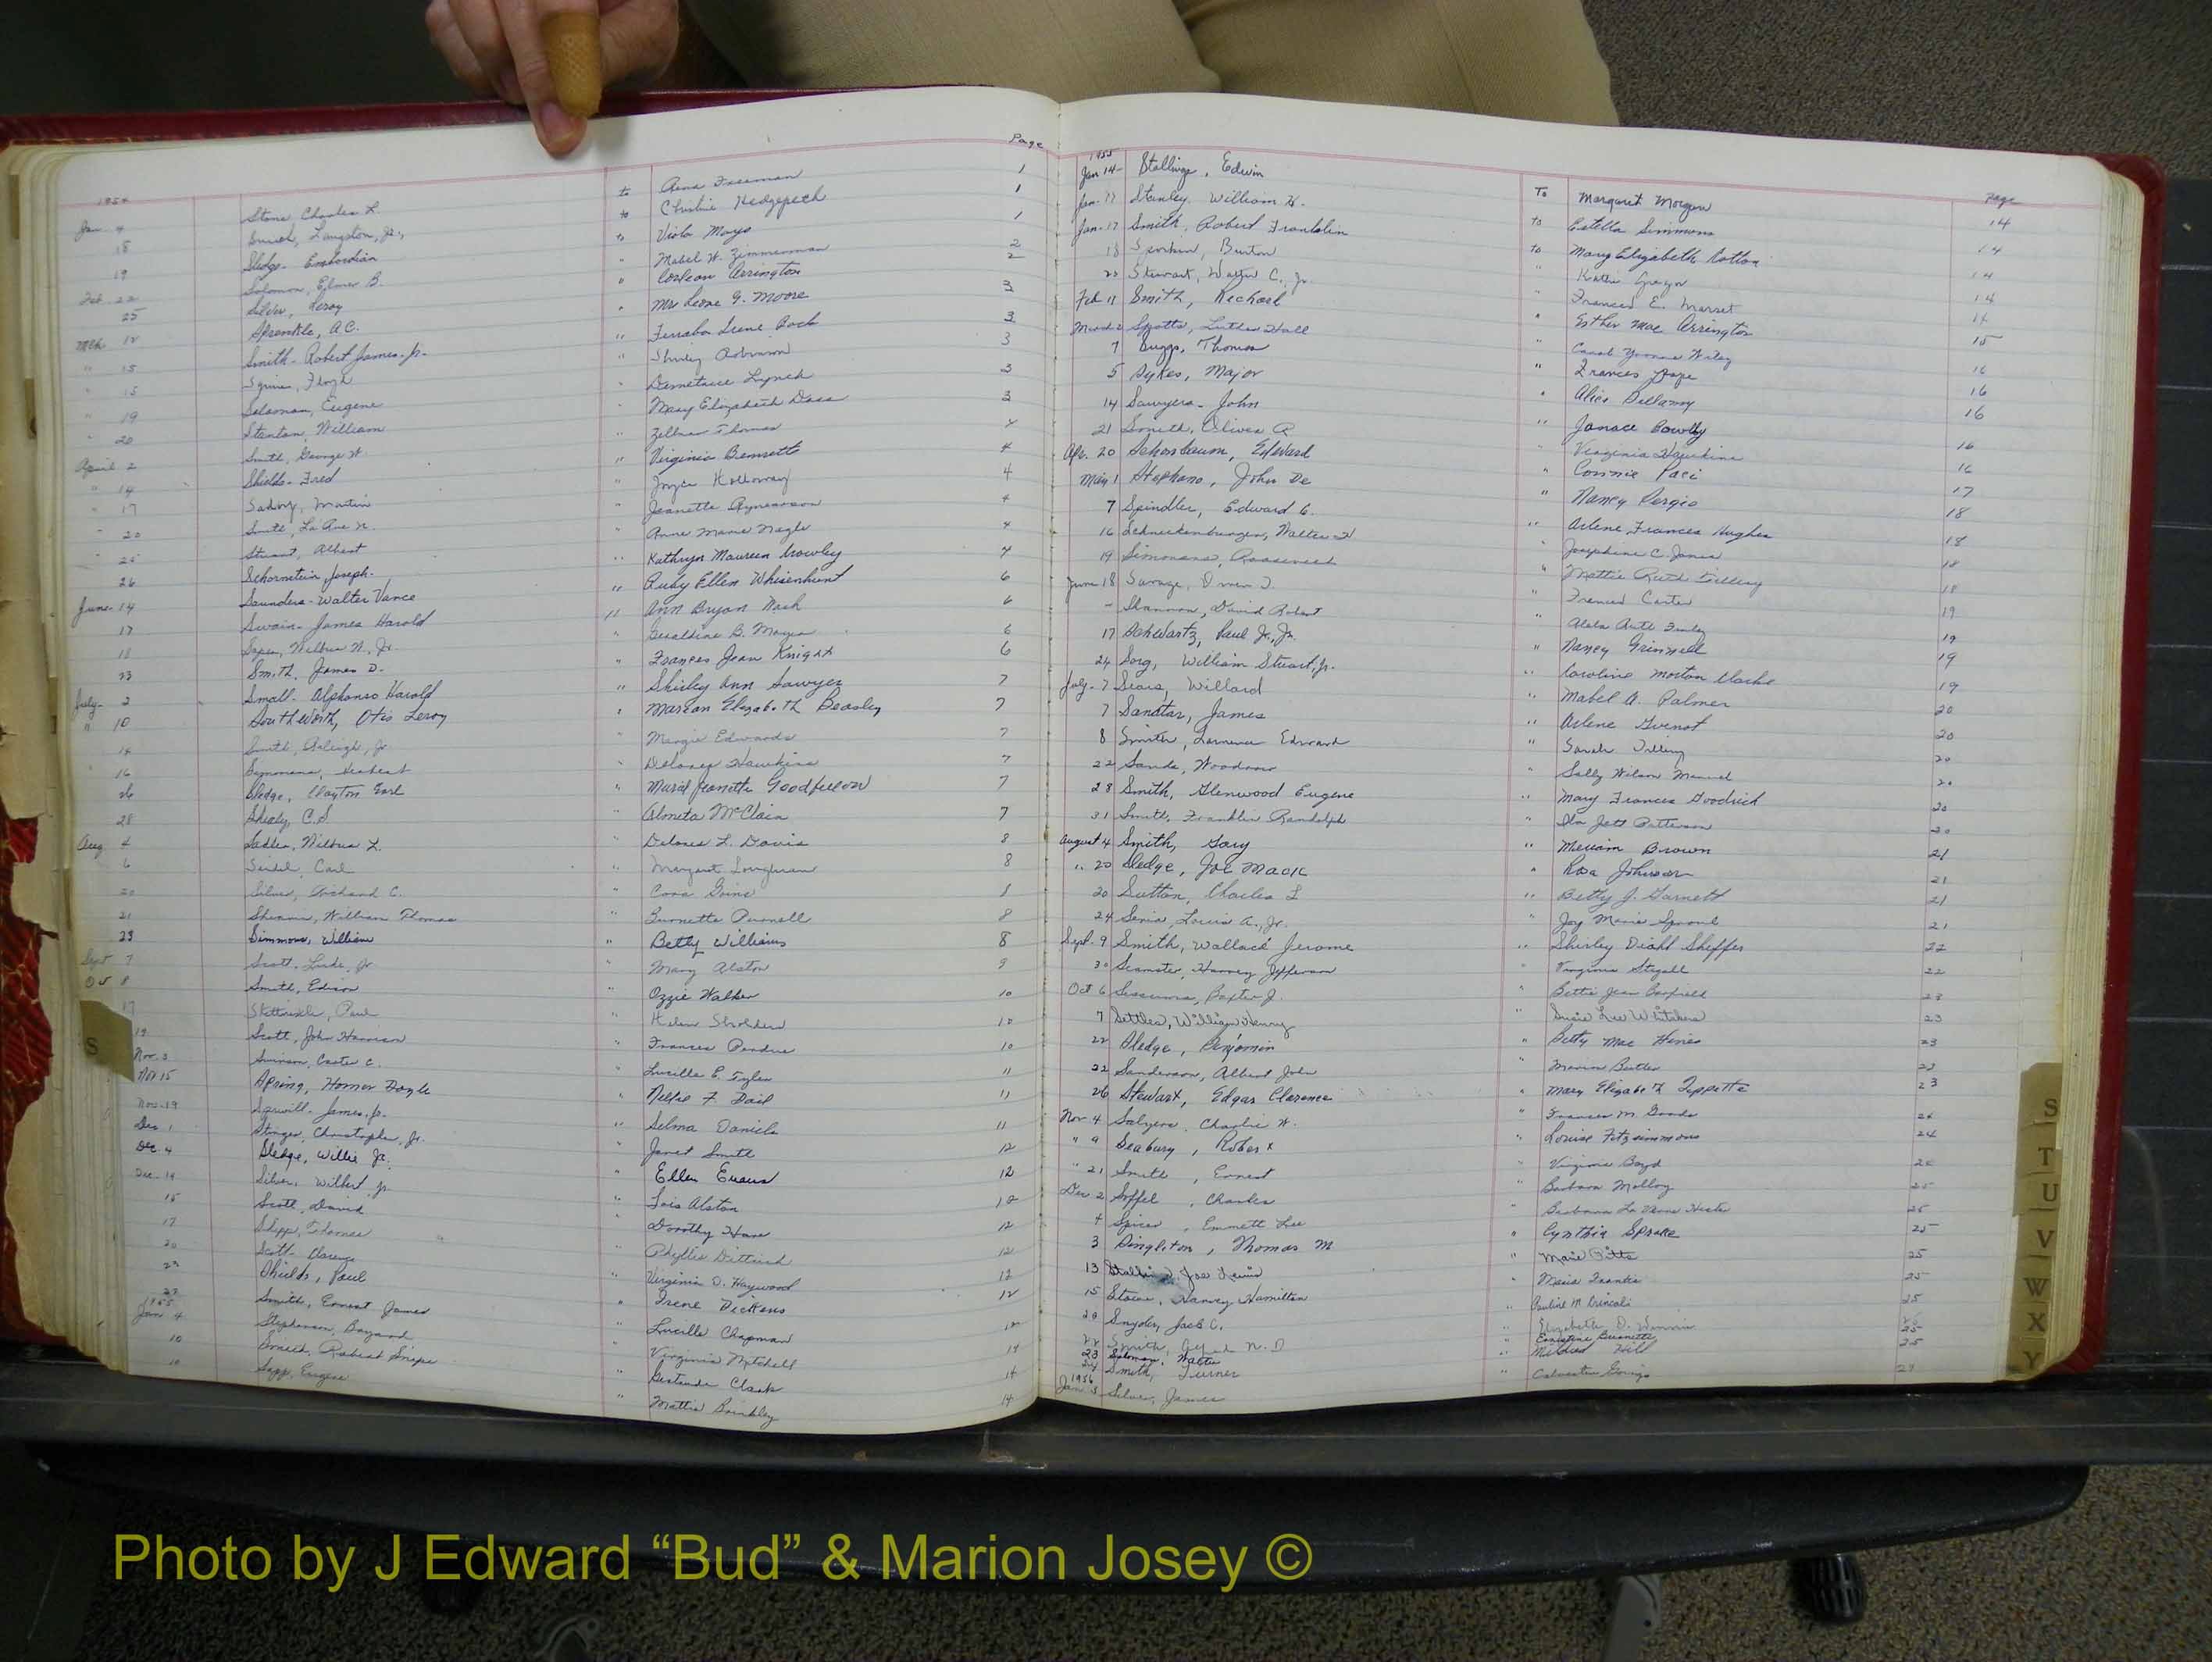 Page
1954
Jan. 4 Stone, Charles L. to Rena Freeman 1
18 Langston, Jr., to Christine Hedgepeth 1
19 Sledge to Viola Mayo 1
Feb. 22 Solomon, Elmer B. " Mabel W. Zimmerman 2
25 Silver, Leroy " Arrington 2
Mch. 12 Sprenkle, A.C. " Mrs Leone G. Moore 3
" 15 Smith - Robert James - Jr. " Irene 3
" 15 Floyd " Shirley Robinson 3
" 19 Solomon, Eugene " Lynch 3
" 20 Stanton, William " Mary Elizabeth 3
April 2 Smith, George W. " Thomas 4
" 14 Shields - Fred " Virginia Bennett 4
" 17 Martin " Joyce Holloway 4
" 20 Smith, " Jeanette 4
" 25 Stuart, Albert " Anne Marie Nagle 4
26 Schornstein, Joseph. " Kathryn Maureen Crowley 4
June 14 Saunders - Walter Vance " Ruby Ellen Whisenhunt 6
17 Swain - James Harold " Ann Bryan Nash 6
18 Wilbur N., Jr. " Geraldine B. 6
23 Smith, James D. " Frances Jean Knight 6
July 2 Small - Alphonso Harold " Shirley Ann Sawyer 7
" 10 Southworth, Otis Leroy " Marian Elizabeth Beasley 7
" 14 Smith, Raleigh, Jr " Margie Edwards 7
" 16 Symonans, Herbert " Delores Hawkins 7
26 Sledge, Clayton Earl " Jeanette Goodfellow 7
28 Shealy, C.S " Almeta McClain 7
Aug 4 Sadler, Wilbur L. " Delores L. Davis 8
6 Seidel, Carl " Margaret Loughman 8
20 Silver, Richard C. " Cora 8
21 William Thomas " Burnette Purnell 8
23 Simmons, William " Betty Williams 8
Sept 7 Scott, Jr " Mary Alston 9
Oct 8 Smith, Edison " Ozzie Walker 10
17 Paul " Helen 10
19 Scott, John Harrison " Frances Perdue 10
Nov. 3 Swinson, Carter C. " Lucille E. Tyler 11
Nov 15 Spring, Homer Doyle " Nellie F. Dail 11
Nov. 19 James, Jr. " Selma Daniels 11
Dec. 1 Christopher, Jr. " Janet Smith 12
Dec. 4 Sledge, Willie Jr. " Ellen Evans 12
Dec. 14 Silver, Wilbert, Jr " Lois Alston 12
15 Scott, David " Dorothy 12
17 Shipp, Thomas " Phyllis 12
20 Scott - Clarence " Virginia D. Haywood 12
23 Shields, Paul " Irene Dickens 12
23 Smith, Ernest James " Lucille Chapman 12
1955
Jan 4 Stephenson, Bayard " Virginia Mitchell 14
10 Robert " Gertrude Clark 14
10 Sapp, Eugene " Mattie Brinkley 14
page
1955
Jan 14 Stallings, Edwin To Margaret Morgan 14
Jan. 17 Stanley, William H. to Estella Simmons 14
Jan. 17 Smith, Robert Franklin to Mary Elizabeth 14
18 Burton " Katie 14
20 Stewart, Walter C., Jr. " Frances E. 14
Feb 11 Smith, Richard " Esther Mae Arrington 15
March 2 Spotts, Luther Hall " Carol Yvonne Wiley 16
7 Suggs, Thomas " Frances Pope 16
5 Sykes, Major " Alice Bellamy 16
14 Sawyers - John " Janace Cowlby
21 Smith, Oliver R " Virginia Hawkins 16
Apr. 20 Schonbaum, Edward " Connie Paci 16
May 1 Stephano, John De " Nancy Pergio 17
7 Spindler, Edward C. " Arlene Frances Hughes 18
16 Schneckenburger, Walter " Josephine C. Jones 18
19 Simmons, Roosevelt " Mattie Ruth 18
June 18 Savage, " Carter 18
- Shannon, David Robert " 19
17 Schwartz, Paul Jr., Jr. " Nancy Grinnell 19
24 Sorg, William Stuart, Jr. " Caroline Morton Clarke 19
July - 7 Sears, Willard " Mabel A. Palmer 19
7 Sandtar, James " Arlene Guenot 20
8 Smith, Lawrence Edward " Sarah 20
22 Sands, Woodrow " Sally Wilson 20
28 Smith, Glenwood Eugene " Mary Frances Goodrich 20
31 Smith, Franklin Randolph " Ida Jett Patterson 20
August 4 Smith, Gary " Meriam Brown 20
" 20 Sledge, Joe Mack " Rosa Johnson 21
20 Sutton, Charles L " Betty J. Garnett 21
24 Louis A., Jr. " Joy Marie 21
Sept. 9 Smith, Wallace Jerome " Shirley Diahl Sheffer 22
30 Seamster, Harvey Jefferson " Virginia Stegall 22
Oct 6 Sessums, Baxter J. " Bettie Jean 23
7 Settles, William Henry " Susie Lee Whitaker 23
22 Sledge, Benjamin " Betty Mae Hines 23
22 Sanderson, Albert John " Marion Butler 23
26 Stewart, Edgar Clarence " Mary Elizabeth Tippette 23
Nov. 4 Salyers, Charlie W. " Frances M. Goode 24
" 9 Seabury, Robert " Louise Fitzsimmons 24
" 21 Smith, Ernest " Virginia Boyd
Dec 2 Soffel, Charles " Barbara Malloy 25
4 Spicer, Emmett Lee " Barbara 25
3 Singleton, Thomas M " Cynthia Sprake 25
13 Joe Lewis " Marie Pitts 25
15 Stowe, Harvey Hamilton " Marie Franks 25
20 Snyder, Jack C. " Pauline M. 25
22 Smith, N. D " Elizabeth D.
23 Solomon, Walter " Ernestine Burnette 25
24 Smith, Turner " Mildred Hill 25
1956
Jan 3 Silver, James "
S
S
T
U
V
W
X
Y
Photo by J Edward “Bud” & Marion Josey ©